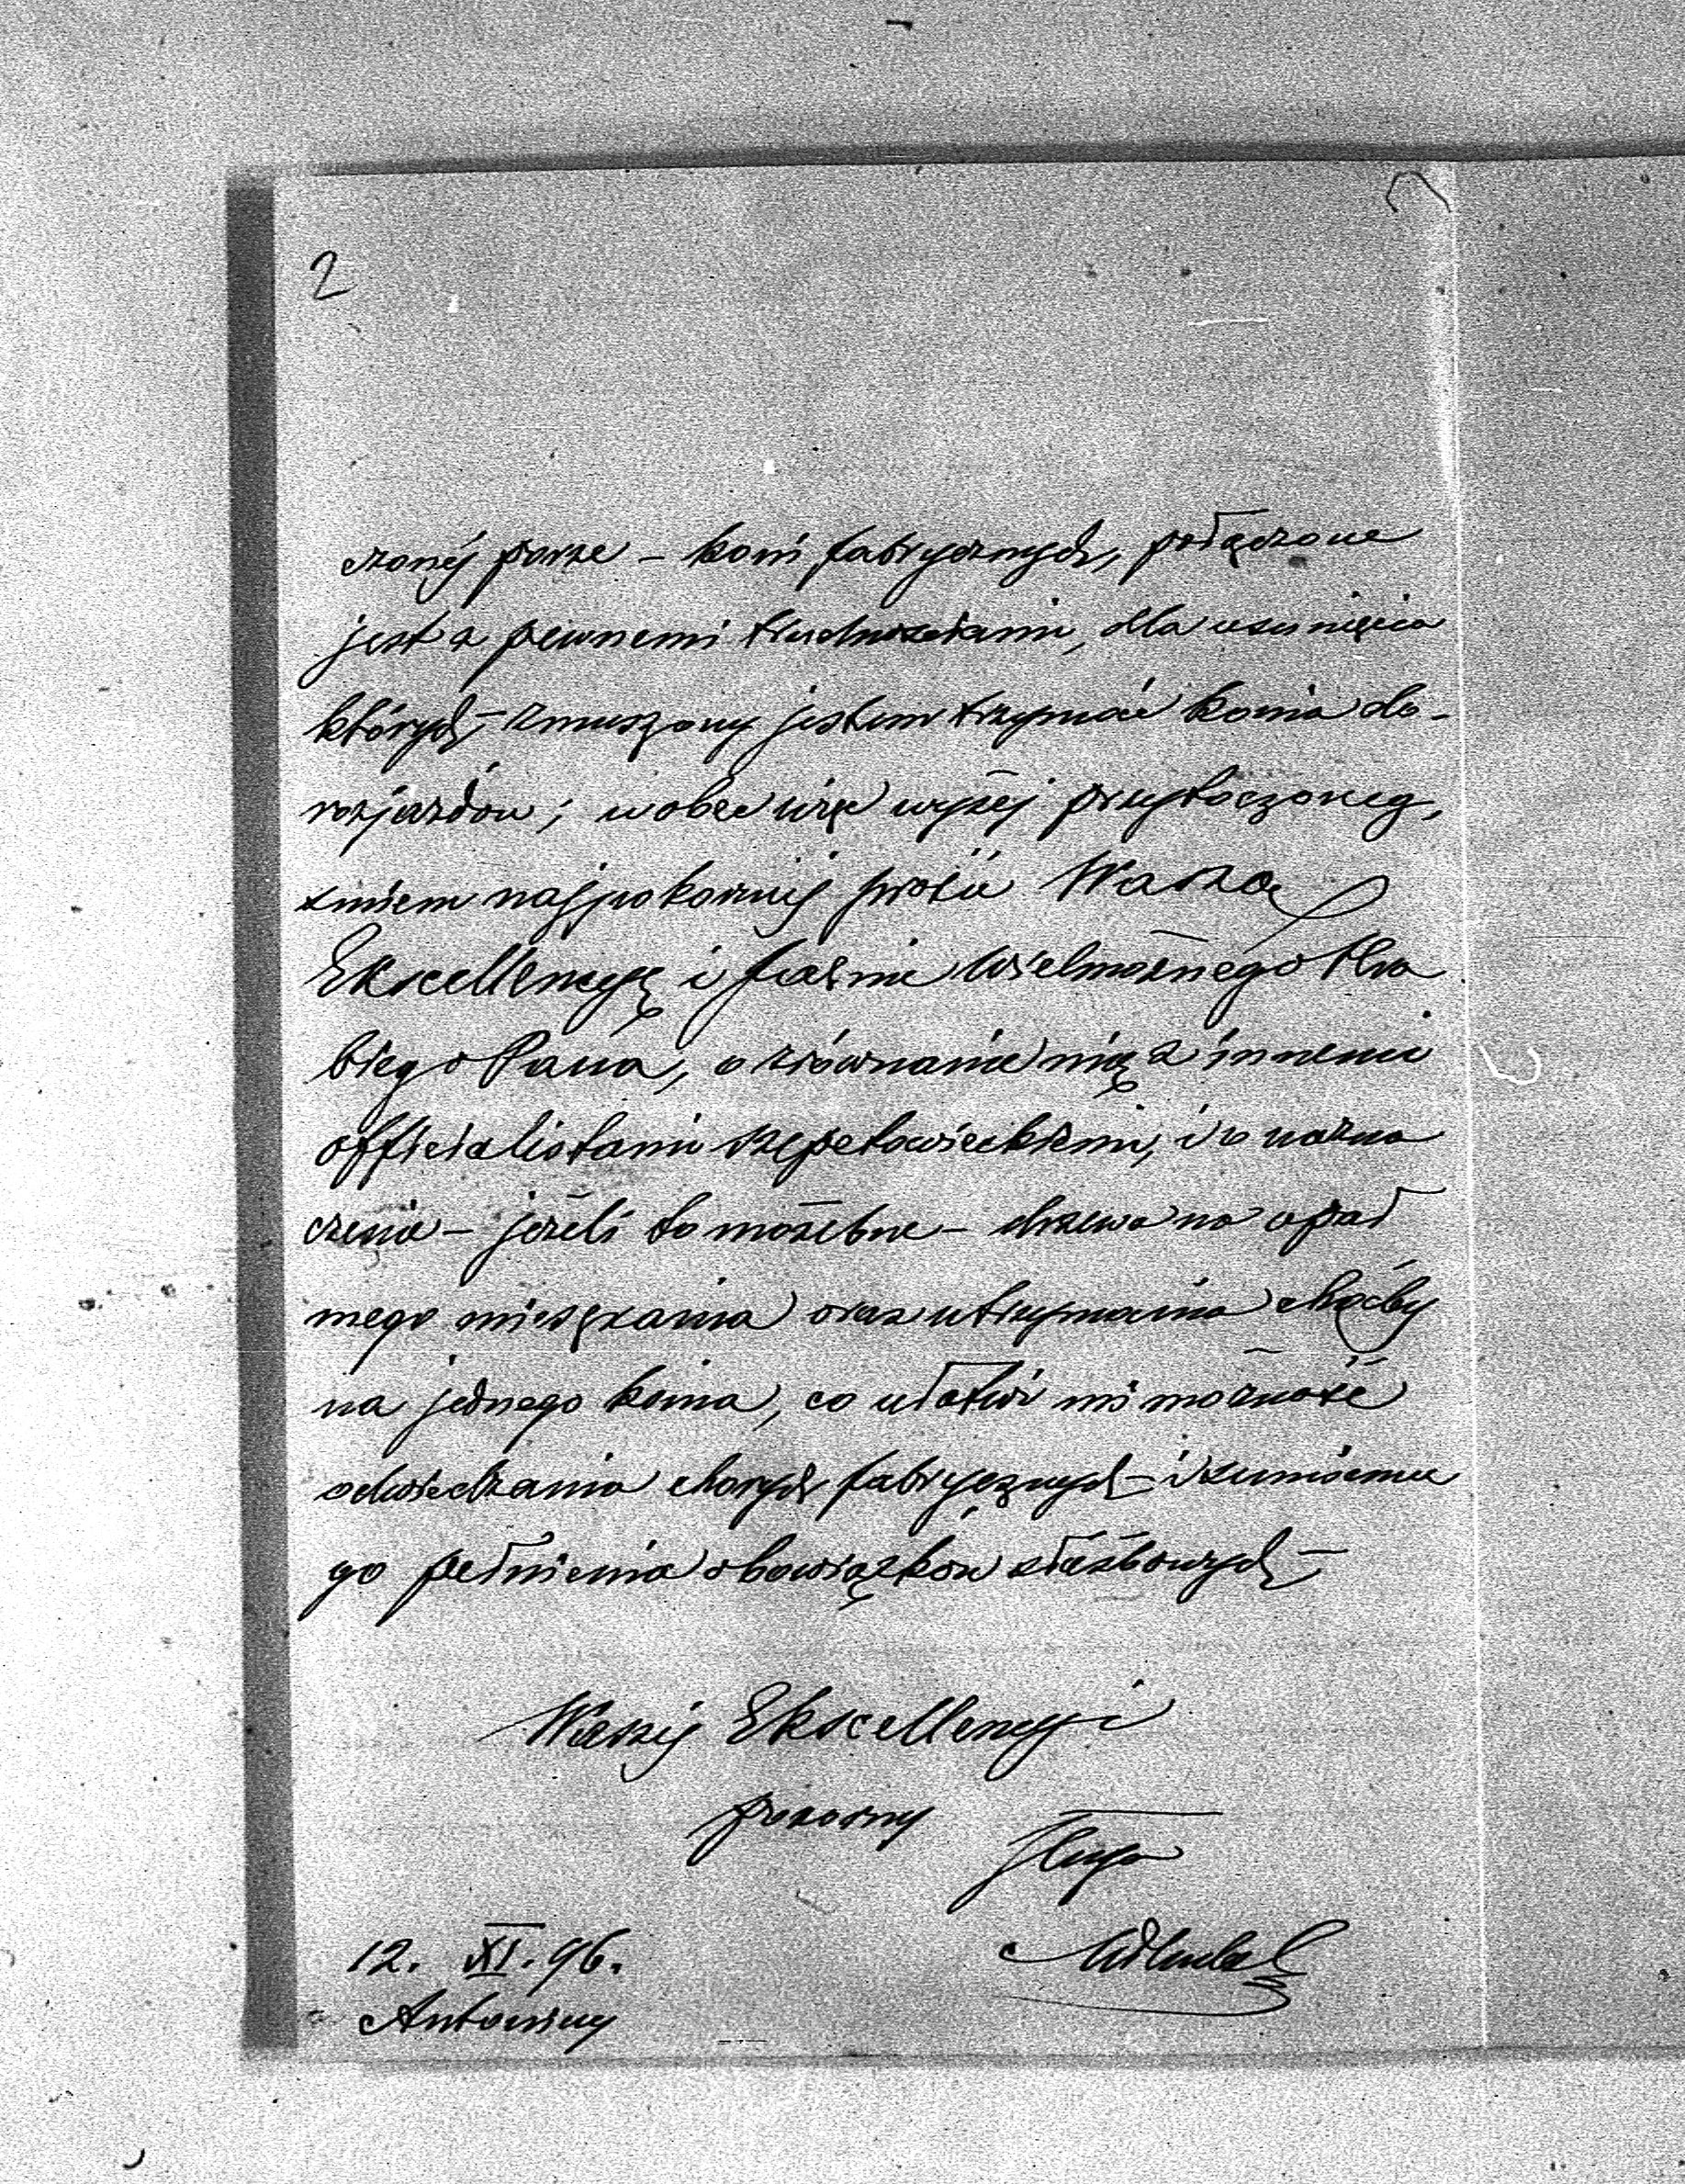 2
czonéj porze – koni fabrycznych, połączone
jest z pewnemi trudnościami, dla usunięcia
których, zmuszony jestem trzymać konia do-
rozjazdów; wobec więc wyżéj przytoczoneg,
śmiem najpokorniéj prosić Waszą
Ekscellencyę i Jaśnie Wielmożnego Hra
biego Pana, o zrównanie mię z innemi
officialistami szepetowieckiemi, i o nazna
czenie – jeżeli to możebne – drzewa na opał
mego mieszkania oraz utrzymania choćby
na jednego konia, co ułatwi mi możność
odwiedzania chorych fabrycznych i sumienne
go pełnienia obowiązków służbowych
Waszéj Ekscellencyi
pokorny
sługa
12. XI. 96.
Antoniny